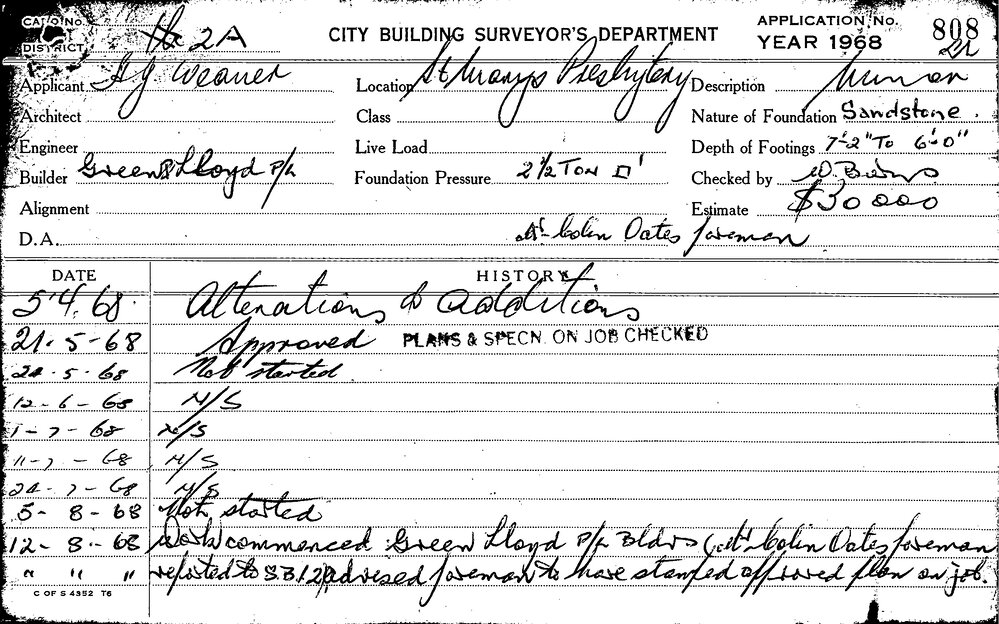 CARD No. 2A CITY BUILDING SURVEYOR'S DEPARTMENT APPLICATION No. 808
DISTRICT YEAR 1968
Applicant G J Weaver Location St Marys Presbytery Description
Architect Class Nature of Foundation Sandstone.
Engineer Live Load Depth of Footings 7'-2" To 6'-0"
Builder Green & Lloyd P/L Foundation Pressure 2½ Ton □' Checked by W. Burns
Alignment Estimate $30000
D.A. Mr Colin Oates foreman
DATE HISTORY
5.4.68. Alterations & additions
21.5-68 Approved PLANS & SPECN. ON JOB CHECKED
24.5-68 Not started.
12-6-68 N/S
1-7-68 N/S
11-7-68 N/S
24-7-68 N/S
5-8-68 Not started
12-8-68 Work commenced Green Lloyd P/L Bldrs (Mr Colin Oates foreman
" " " reported to S.B.12) advised foreman to have stamped approved plan on job.
C OF S 4352 T6